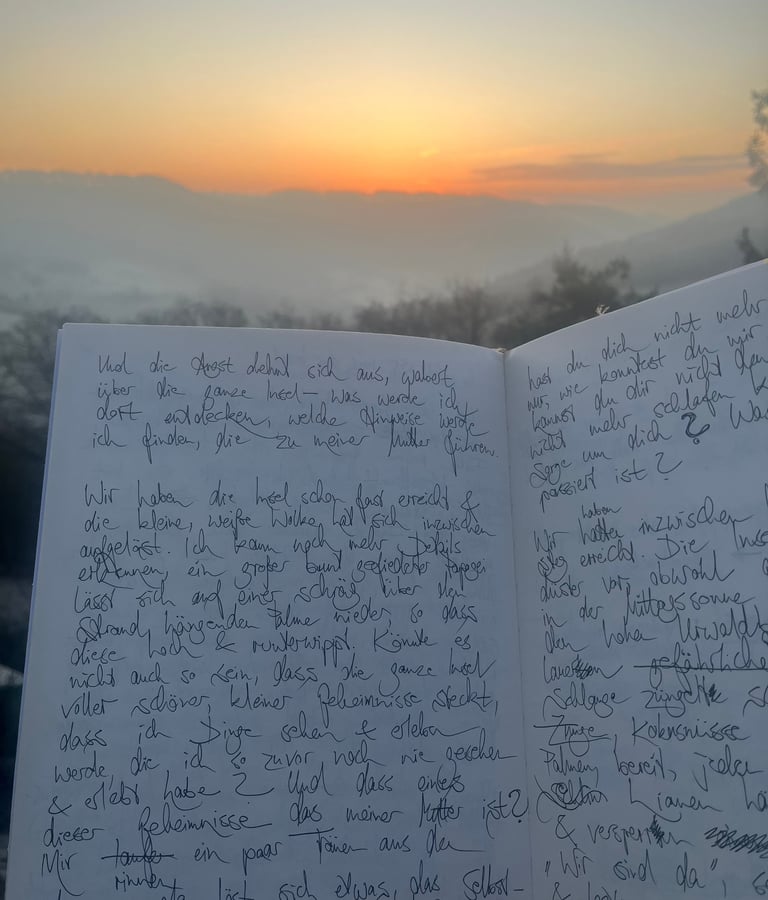 Und die Angst dehnt sich aus, wabert
über die ganze Insel – was werde ich
dort entdecken, welche Hinweise werde
ich finden, die zu meiner Mutter führen.
Wir haben die Insel schon fast erreicht &
die kleine, weiße Wolke hat sich inzwischen
aufgelöst. Ich kann noch mehr Details
erkennen, ein großer bunt gefiederter Papagei
lässt sich auf einer schräg über den
Strand hängenden Palme nieder, so dass
diese hoch & runterwippt. Könnte es
nicht auch so sein, dass die ganze Insel
voller schöner, kleiner Geheimnisse steckt,
dass ich Dinge sehen & erleben
werde, die ich so zuvor noch nie gesehen
& erlebt habe? Und dass eines
dieser Geheimnisse das meiner Mutter ist?
Mir laufen ein paar Tränen aus den
rinnen
löst sich etwas, das Selbst-
hast du dich nicht mehr
nur, wie konntest du mir
kannst du dir nicht den
nicht mehr schlafen
Sorge um dich? Was
passiert ist?
haben
Wir hatten inzwischen
erreicht. Die Insel
düster vor, obwohl
in der Mittagssonne
den hohen Urwald
lauern gefährliche
Schlange züngelt
Zunge Kokosnüsse
Palmen, bereit, jeden
Lianen
& versperren
"Wir sind da",